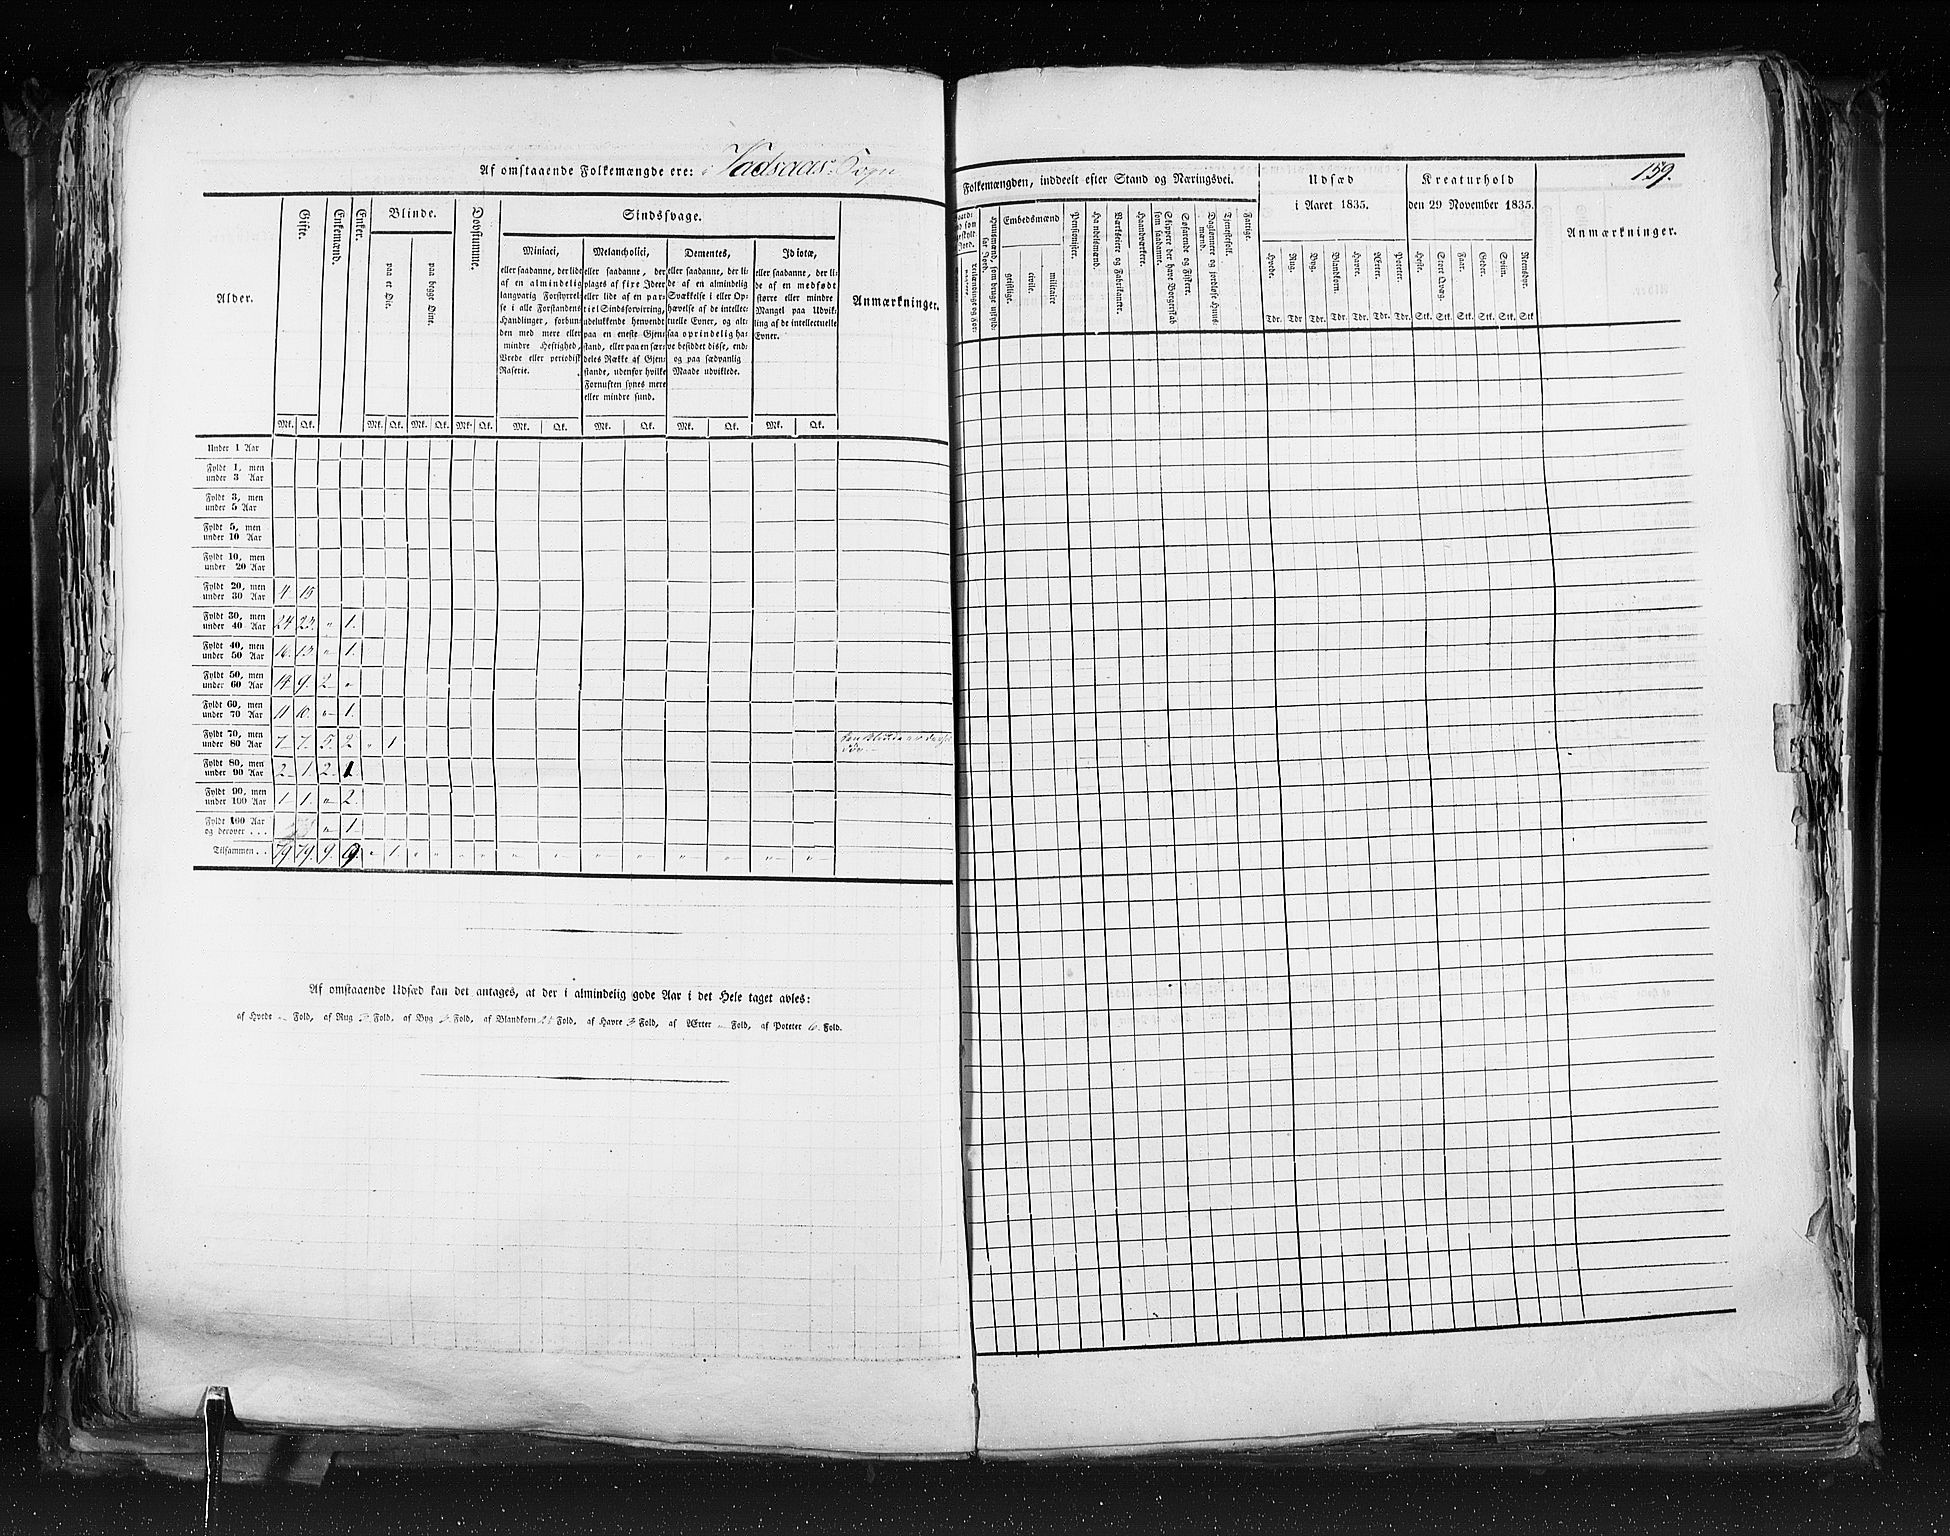 Af omstaaende Folkemængde ere: i Vadsaas Sogn
Alder.
Gifte.
Enkemænd.
Enker.
Blinde.
paa et Øie.
paa begge Øine.
Døvstumme.
Sindssvage.
Miniaci,
eller saadanne, der lide
af en almindelig
langvarig Forstyrrel
se i alle Forstandens
Handlinger, forbun-
den med mere eller
mindre Heftighed,
Vrede eller periodisk
Raserie.
Melancholici,
eller saadanne, der
plages af fixe Ideer
eller lide af en par
tiel Sindsforvirring,
udelukkende henvendt
paa en eneste Gjen-
stand, eller paa en sær-
deles Række af Gjen-
stande, udenfor hvilke
Fornuften synes mere
eller mindre sund.
Dementes,
eller saadanne, der li-
de af en almindelig
Svækkelse i eller Op-
hævelse af de intellec-
tuelle Evner, og alt-
saa oprindelig ha-
ve besiddet disse, end-
og paa sædvanlig
Maade udviklede.
Idiotæ,
eller saadanne, der li-
de af en medfødt
større eller mindre
Mangel paa Udvik-
ling af de intellectuelle
Evner.
Anmærkninger.
Mk. Qk. Mk. Qk. Mk. Qk. Mk. Qk. Mk. Qk. Mk. Qk. Mk. Qk. Mk. Qk.
Under 1 Aar
Fyldt 1, men
under 3 Aar
Fyldt 3, men
under 5 Aar
Fyldt 5, men
under 10 Aar
Fyldt 10, men
under 20 Aar
Fyldt 20, men
under 30 Aar 4 15
Fyldt 30, men
under 40 Aar 24 23. " 1.
Fyldt 40, men
under 50 Aar 16. 13. " 1.
Fyldt 50, men
under 60 Aar 14 9. 2 "
Fyldt 60, men
under 70 Aar 11 10. " 1.
Fyldt 70, men
under 80 Aar 7 7. 5. 2 " 1
Fyldt 80, men
under 90 Aar 2 1. 2 1
Fyldt 90, men
under 100 Aar 1 1. " 2.
Fyldt 100 Aar
og derover . . . " 1
Tilsammen . . 79 79. 9. 9. " 1 " " " " " " " " " " " "
Af omstaaende Udsæd kan det antages, at der i almindelig gode Aar i det Hele taget avles:
af Hvede " Fold, af Rug Fold, af Byg Fold, af Blandkorn Fold, af Havre 3 Fold, af Ærter " Fold, af Poteter 6 Fold.
159.
Folkemængden, inddeelt efter Stand og Næringsvei.
Huusmænd, som bruge udskyld-
sat Jord.
Embedsmænd
geistlige.
civile.
militaire
Pensionister.
Handelsmænd.
Værkseiere og Fabrikanter.
Haandværkere.
Skippere der have Borgerskab
som saadanne.
Søfarende og Fiskere.
Daglønnere og jordløse Huus-
mænd.
Tjenestefolk.
Fattige.
Udsæd
i Aaret 1835.
Hvede. Rug. Byg. Blandkorn. Havre. Ærter. Poteter.
Tdr. Tdr. Tdr. Tdr. Tdr. Tdr. Tdr.
Kreaturhold
den 29 November 1835.
Heste. Stort Qvæg. Faar. Geder. Sviin. Reensdyr.
Stk. Stk. Stk. Stk. Stk. Stk
Anmærkninger.